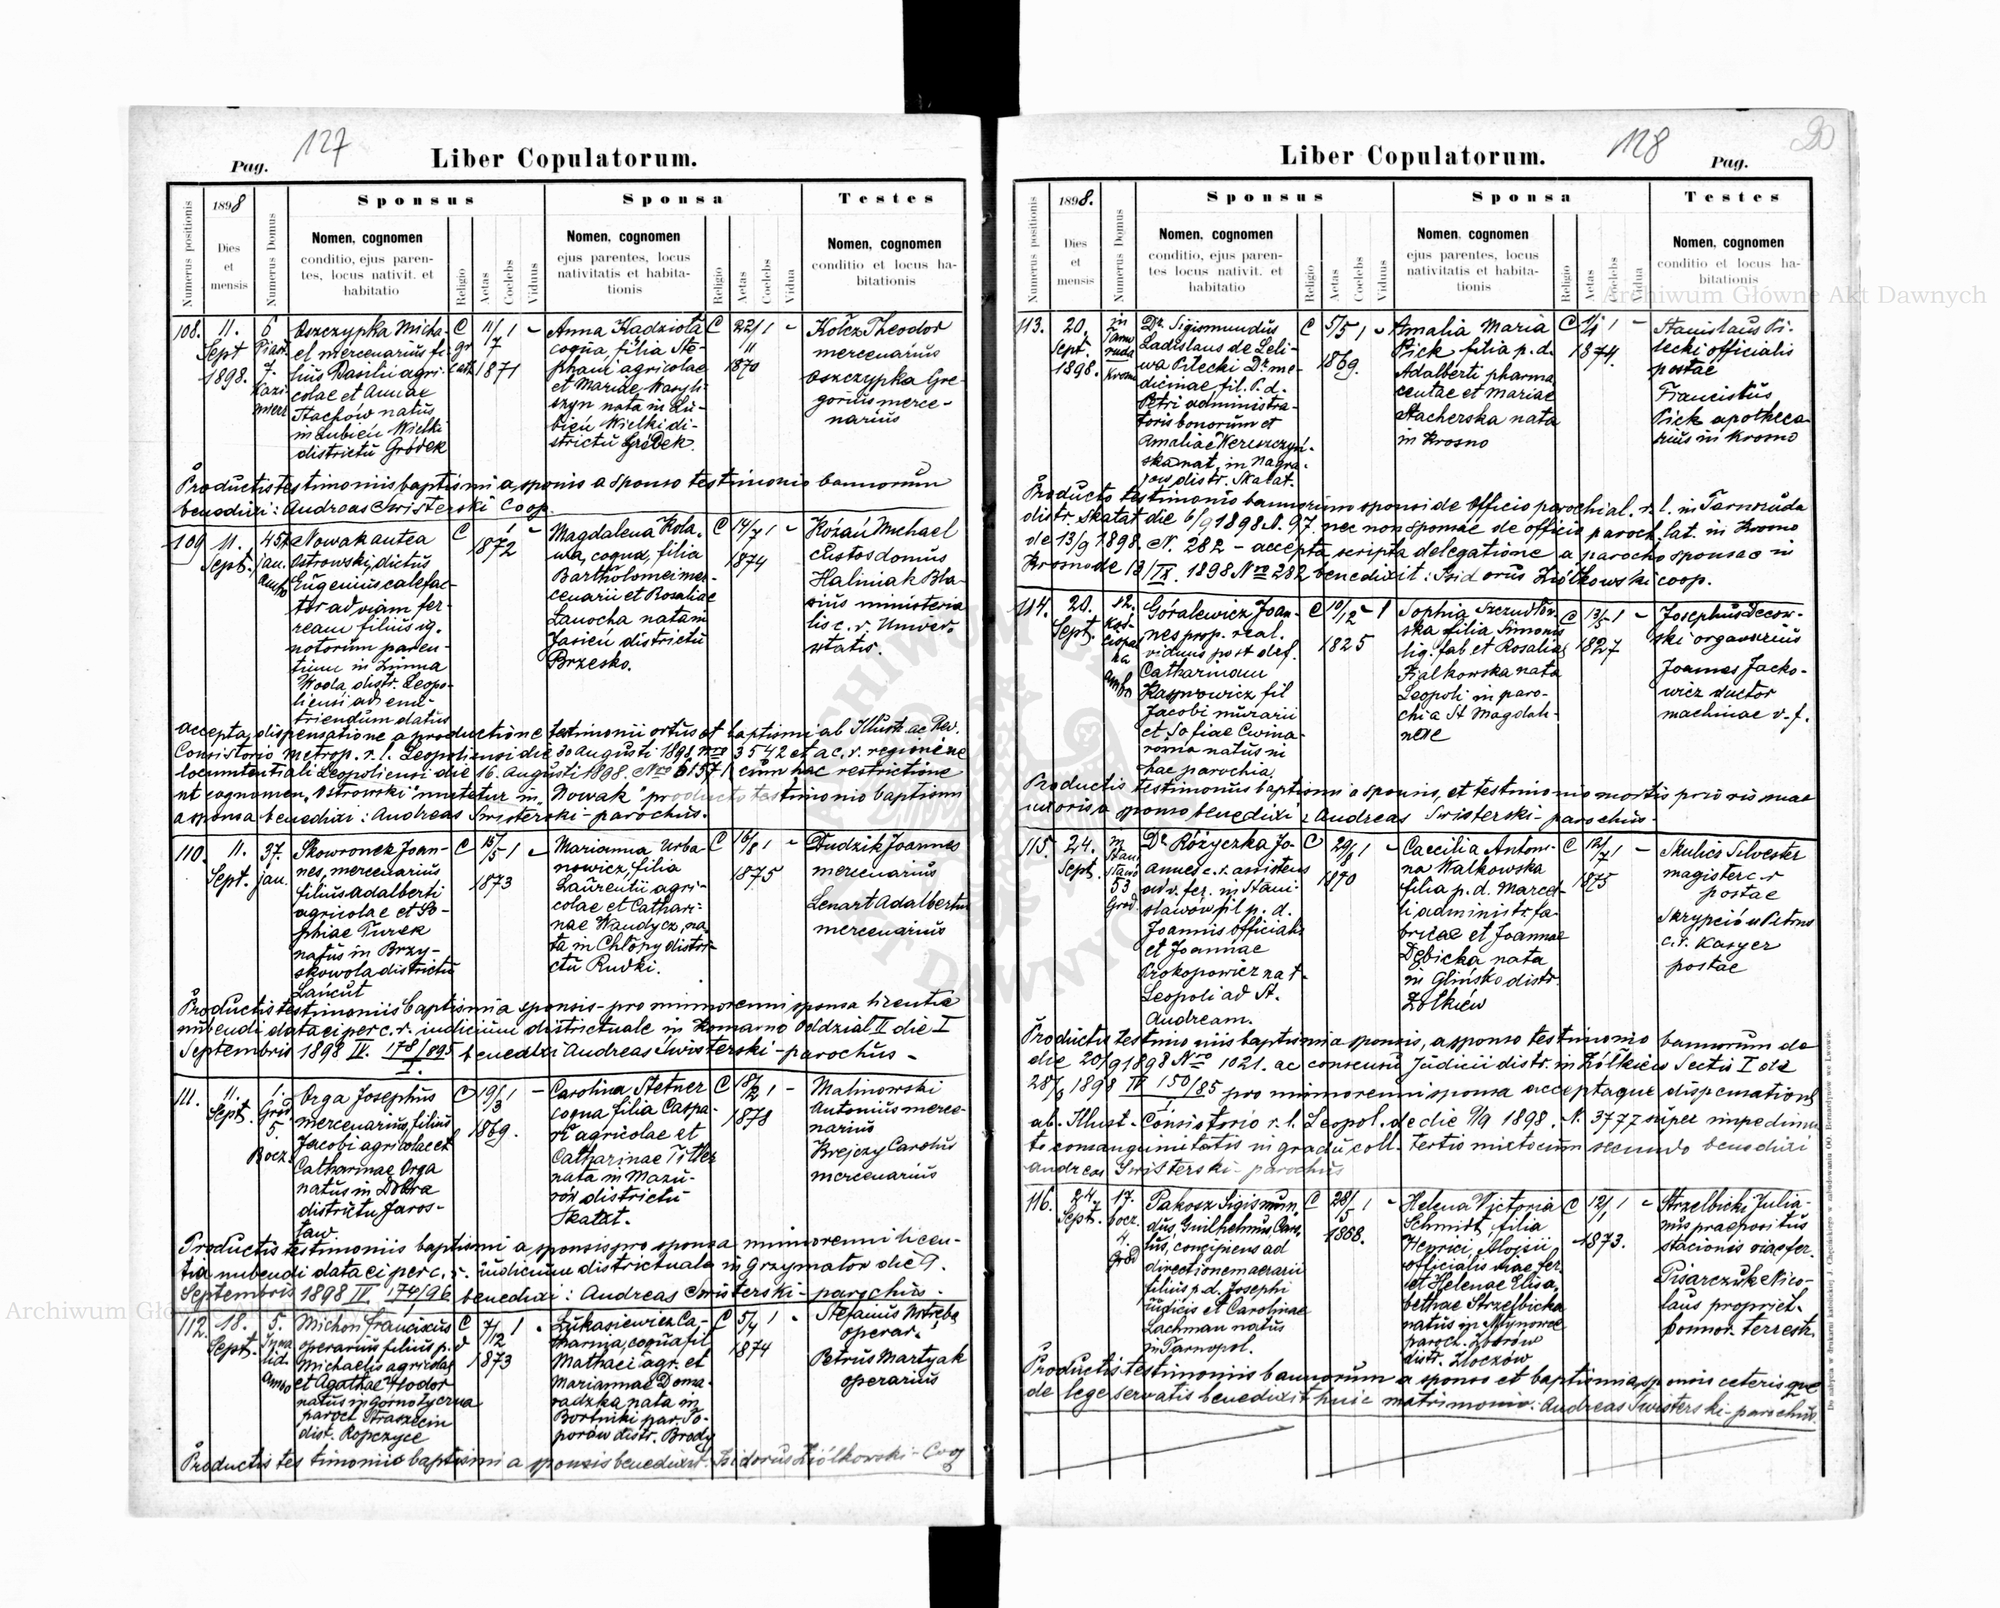 127
Pag.
Liber Copulatorum.
Numerus positionis
1898
Dies
et
mensis
Numerus Domus
Sponsus
Nomen, cognomen
conditio, ejus paren-
tes, locus nativit. et
habitatio
Religio
Aetas
Coelebs
Viduus
Sponsa
Nomen, cognomen
ejus parentes, locus
nativitatis et habita-
tionis
Religio
Aetas
Coelebs
Vidua
Testes
Nomen, cognomen
conditio et locus ha-
bitationis
108.
11.
Sept
1898.
6
Piast.
7.
Kazi
mierz
Oszczypka Micha-
el mercenarius fi-
lius Basilii agri-
colae et Annae
Stachów natus
in Lubień Wielki
districtu Gródek
C
gr
cath
11/7
1
-
1871
Anna Kadziota
coqua filia Ste-
phani agricolae
et Mariae Wasyli-
szyn nata in Lu-
bień Wielki di-
strictu Gródek.
C
22/11
1
-
1870
Kołcz Theodor
mercenarius
Oszczypka Gre-
gorius merce-
narius
Productis testimoniis baptismi a sponsis a sponso testimonio bannorum
benedixi: Andreas Swisterski Coop.
109
11.
Sept.
45a
jan.
Ambo
Nowak antea
Ostrowski, dictus
Eugenius calefac-
tor ad viam fer-
ream filius ig-
notorum paren-
tium in Zimna
Woda, distr. Leopo-
liensi ad enu-
triendum datus
C
1872
-
Magdalena Kola,
wa, coqua, filia
Bartholomei mer-
cenarii et Rosaliae
Lanocha nata in
Jasień districtu
Brzesko.
C
14/7
1
-
1874
Kozań Michael
custos domus
Haliniak Bla-
sius ministeria
lis c. r. Univer-
sitatis.
accepta, dispensatione a productione testimonii ortus et baptismi ab Illust. ac Rev.
Consistorio Metrop. r. l. Leopoliensi die 30 Augusti 1898 Nro 3542 et a c. r. regimine
locumtentiali Leopoliensi die 16. Augusti 1898. Nro 61571 cum hac restrictione
ut cognomen „Ostrowski" mutetur in „Nowak" producto testimonio baptismi
a sponsa benedixi: Andreas Swisterski - parochus.
110.
11.
Sept.
37.
jan.
Skowronek Joan-
nes, mercenarius
filius Adalberti
agricolae et So-
phiae Turek
natus in Brzy-
skowola districtu
Łańcut
C
15/5
1
-
1873
Marianna Urba
nowicz, filia
Laurentii agri-
colae et Cathari-
nae Wandycz, na-
ta in Chłopy distri-
ctu Rudki.
C
16/8
1
-
1875
Dudzik Joannes
mercenarius
Lenart Adalbertus
mercenarius
Productis testimoniis baptismi a sponsis - pro minorenni sponsa licentia
nubendi data ei per c. r. iudicium districtuale in Komarno Oddział II die I
Septembris 1898 IV. 178/895 benedixi Andreas Swisterski - parochus -
I.
111.
11.
Sept.
1.
Gród.
5.
Bocz.
Orga Josephus
mercenarius, filius
Jacobi agricolae et
Catharinae Orga
natus in Dobra
districtu Jaros-
ław.
C
19/3
1
-
1869.
Carolina Stetner
coqua filia Caspa-
ri agricolae et
Catharinae
nata in Mazu-
rów districtu
Skałat.
C
18/2
1
-
1878
Malinowski
Antonius merce-
narius
Krejczy Carolus
mercenarius
Productis testimoniis baptismi a sponsis pro sponsa minorenni licen-
tia nubendi data ei per c. r. iudicium districtuale in Grzymałow die 9.
Septembris 1898 IV 174/96 benedixi: Andreas Swisterski - parochus.
112.
18.
Sept.
5.
Inwa
lid.
Ambo
Michoń Franciscus
operarius filius p. d
Michaelis agricolae
et Agathae Hodor
natus in Gornotyczna
paroch. Straszecin
dist. Ropczyce
C
7/12
1
-
1873
Łukasiewicz Ca-
tharina, coqua fil
Mathaei agr. et
Mariannae Doma-
radzka, nata in
Bortniki par. To-
porów distr. Brody
C
5/4
1
-
1874
Stefanus
operar.
Petrus Martyak
operarius
Productis testimoniis baptismi a sponsis benedixit. Isidorus Ziółkowski - Coop
Liber Copulatorum.
128
Pag.
30
Numerus positionis
1898.
Dies
et
mensis
Numerus Domus
Sponsus
Nomen, cognomen
conditio, ejus paren-
tes locus nativit. et
habitatio
Religio
Aetas
Coelebs
Viduus
Sponsa
Nomen, cognomen
ejus parentes, locus
nativitatis et habita-
tionis
Religio
Aetas
Coelebs
Vidua
Testes
Nomen, cognomen
conditio et locus ha-
bitationis
113.
20.
Sept.
1898.
in
Tarno
ruda
Krosno
Dr. Sigismundus
Ladislaus de Leli-
wa Pilecki Dr. me-
dicinae fil. p. d.
Petri administra-
toris bonorum et
Amaliae Wereszczyń-
ska nat. in Nagra-
distr. Skałat.
C
5/5
1
-
1869.
Amalia Maria
Pick filia p. d.
Adalberti pharma
ceutae et Mariae
Stacherska nata
in Krosno
C
1
-
1874.
Stanislaus Pi-
lecki officialis
postae
Franciscus
Pick apotheca-
rius in Krosno
Producto testimonio bannorum sponsi de Officio parochial. r. l. in Tarnoruda
distr. Skałat die 6/9 1898 N. 97. nec non sponsae de officio paroch. lat. in Krosno
de 13/9 1898. N. 282 - accepta scripta delegatione a parocho sponsae in
Krosno de 13/IX. 1898 Nro 282 benedixit: Isidorus Ziółkowski coop.
114.
20.
Sept.
12.
ka
Ambo
Góralewicz Joan-
nes prop. real.
viduus post def.
Catharinam
Karpowicz fil
Jacobi murarii
et Sofiae Cwina-
rowna natus in
hac parochia.
C
10/12
-
1
1825
Sophia Szczudłow-
ska filia Simonis
lig. fab et Rosaliae
Fialkowska nata
Leopoli in paro-
chia St Magdale-
nae
C
13/5
1
-
1827
Josephus Decow-
ski organarius
Joannes Jacko-
wicz ductor
machinae v. f.
Productis testimoniis baptismi a sponsis, et testimonio mortis prioris suae
uxoris a sponso benedixi: Andreas Swisterski - parochus -
115.
24.
Sept.
in
Stani
sławo
53
Gród.
Dr. Różyczka Jo-
annes c. r. assistens
ad v. fer. in Stani-
sławów fil p. d.
Joannis officialis
et Joannae
Prokopowicz nat.
Leopoli ad St.
Andream.
C
29/8
1
-
1870
Caecilia Antoni-
na Walkowska
filia p. d. Marcel-
li administr. fa-
bricae et Joannae
Dębicka nata
in Glińsko distr.
Żółkiew
C
12/7
1
-
1875
Skulics Silvester
magister c. r
postae
Skrypciów Petrus
c. r. Kasyer
postae
Productis testimoniis baptismi a sponsis, a sponso testimonio bannorum de
die 20/9 1898 Nro 1021. ac consensu Judicii distr. in Żółkiew Sectii I de
28/8 1898 IV 150/85 pro minorenni sponsa acceptaque dispensatione
ab. Illust. Consistorio r. l. Leopol. de die 9/9 1898. N. 3777 super impedimen
to consanguinitatis in gradu coll. tertio mixtocum secundo benedixi
Andreas Swisterski - parochus
116.
24.
Sept.
17.
bocz.
4.
Gród
Pakosz Sigismun,
dus, Guilhelmus, Caro,
lus, concipiens ad
directionem aerarii
filius p. d. Josephi
iudicis et Carolinae
Lachman natus
in Tarnopol.
C
28/5
1
-
1868.
Helena Victoria
Schmidt, filia
Henrici, Aloisii
officialis viae fer.
et Helenae Elisa,
bethae Strzelbicka
natus in Młynowce
paroch. Zborów
distr. Złoczów
C
12/1
1
-
1873.
Strzelbicki Julia-
nus praepositus
stacionis viae fer.
Pisarczuk Nico-
laus propriet.
bonnor. terrestr.
Productis testimoniis bannorum a sponso et baptismi a sponsis ceterisque
de lege servatis benedixit huic matrimonio: Andreas Swisterski - parochus.
Do nabycia w drukarni katolickiej J. Chęcińskiego w zabudowaniu OO. Bernardynów we Lwowie.
Archiwum Główne Akt Dawnych
Archiwum Główne Akt Dawnych
ARCHIWUM GŁÓWNE AKT DAWNYCH